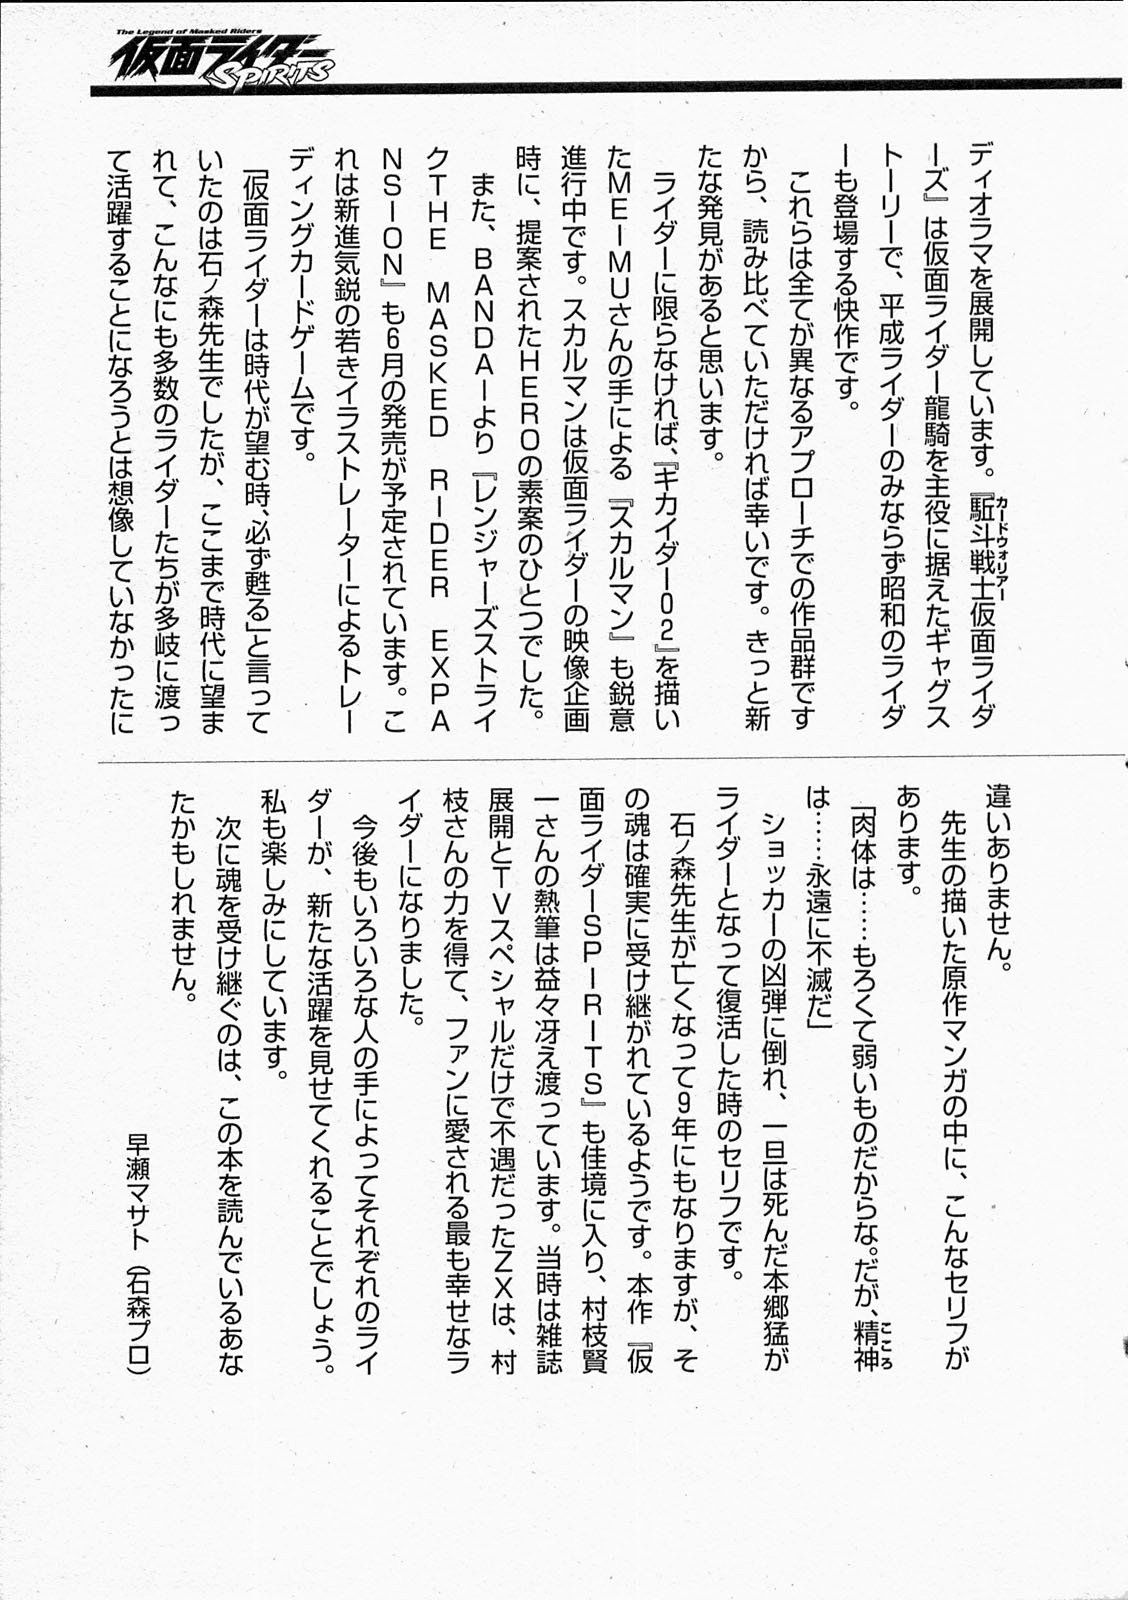 The Legend of Masked Riders
仮面ライダー
SPIRITS
ディオラマを展開しています。『駈斗戦士仮面ライダ
カードウォリアー
ーズ』は仮面ライダー龍騎を主役に据えたギャグス
トーリーで、平成ライダーのみならず昭和のライダ
ーも登場する快作です。
これらは全てが異なるアプローチでの作品群です
から、読み比べていただければ幸いです。きっと新
たな発見があると思います。
ライダーに限らなければ、『キカイダー02』を描い
たMEIMUさんの手による『スカルマン』も鋭意
進行中です。スカルマンは仮面ライダーの映像企画
時に、提案されたHEROの素案のひとつでした。
また、BANDAIより『レンジャーズストライ
クTHE MASKED RIDER EXPA
NSION』も6月の発売が予定されています。こ
れは新進気鋭の若きイラストレーターによるトレー
ディングカードゲームです。
「仮面ライダーは時代が望む時、必ず甦る」と言って
いたのは石ノ森先生でしたが、ここまで時代に望ま
れて、こんなにも多数のライダーたちが多岐に渡っ
て活躍することになろうとは想像していなかったに
違いありません。
先生の描いた原作マンガの中に、こんなセリフが
あります。
「肉体は……もろくて弱いものだからな。だが、精神
こころ
は……永遠に不滅だ」
ショッカーの凶弾に倒れ、一旦は死んだ本郷猛が
ライダーとなって復活した時のセリフです。
石ノ森先生が亡くなって9年にもなりますが、そ
の魂は確実に受け継がれているようです。本作『仮
面ライダーSPIRITS』も佳境に入り、村枝賢
一さんの熱筆は益々冴え渡っています。当時は雑誌
展開とTVスペシャルだけで不遇だったZXは、村
枝さんの力を得て、ファンに愛される最も幸せなラ
イダーになりました。
今後もいろいろな人の手によってそれぞれのライ
ダーが、新たな活躍を見せてくれることでしょう。
私も楽しみにしています。
次に魂を受け継ぐのは、この本を読んでいるあな
たかもしれません。
早瀬マサト（石森プロ）